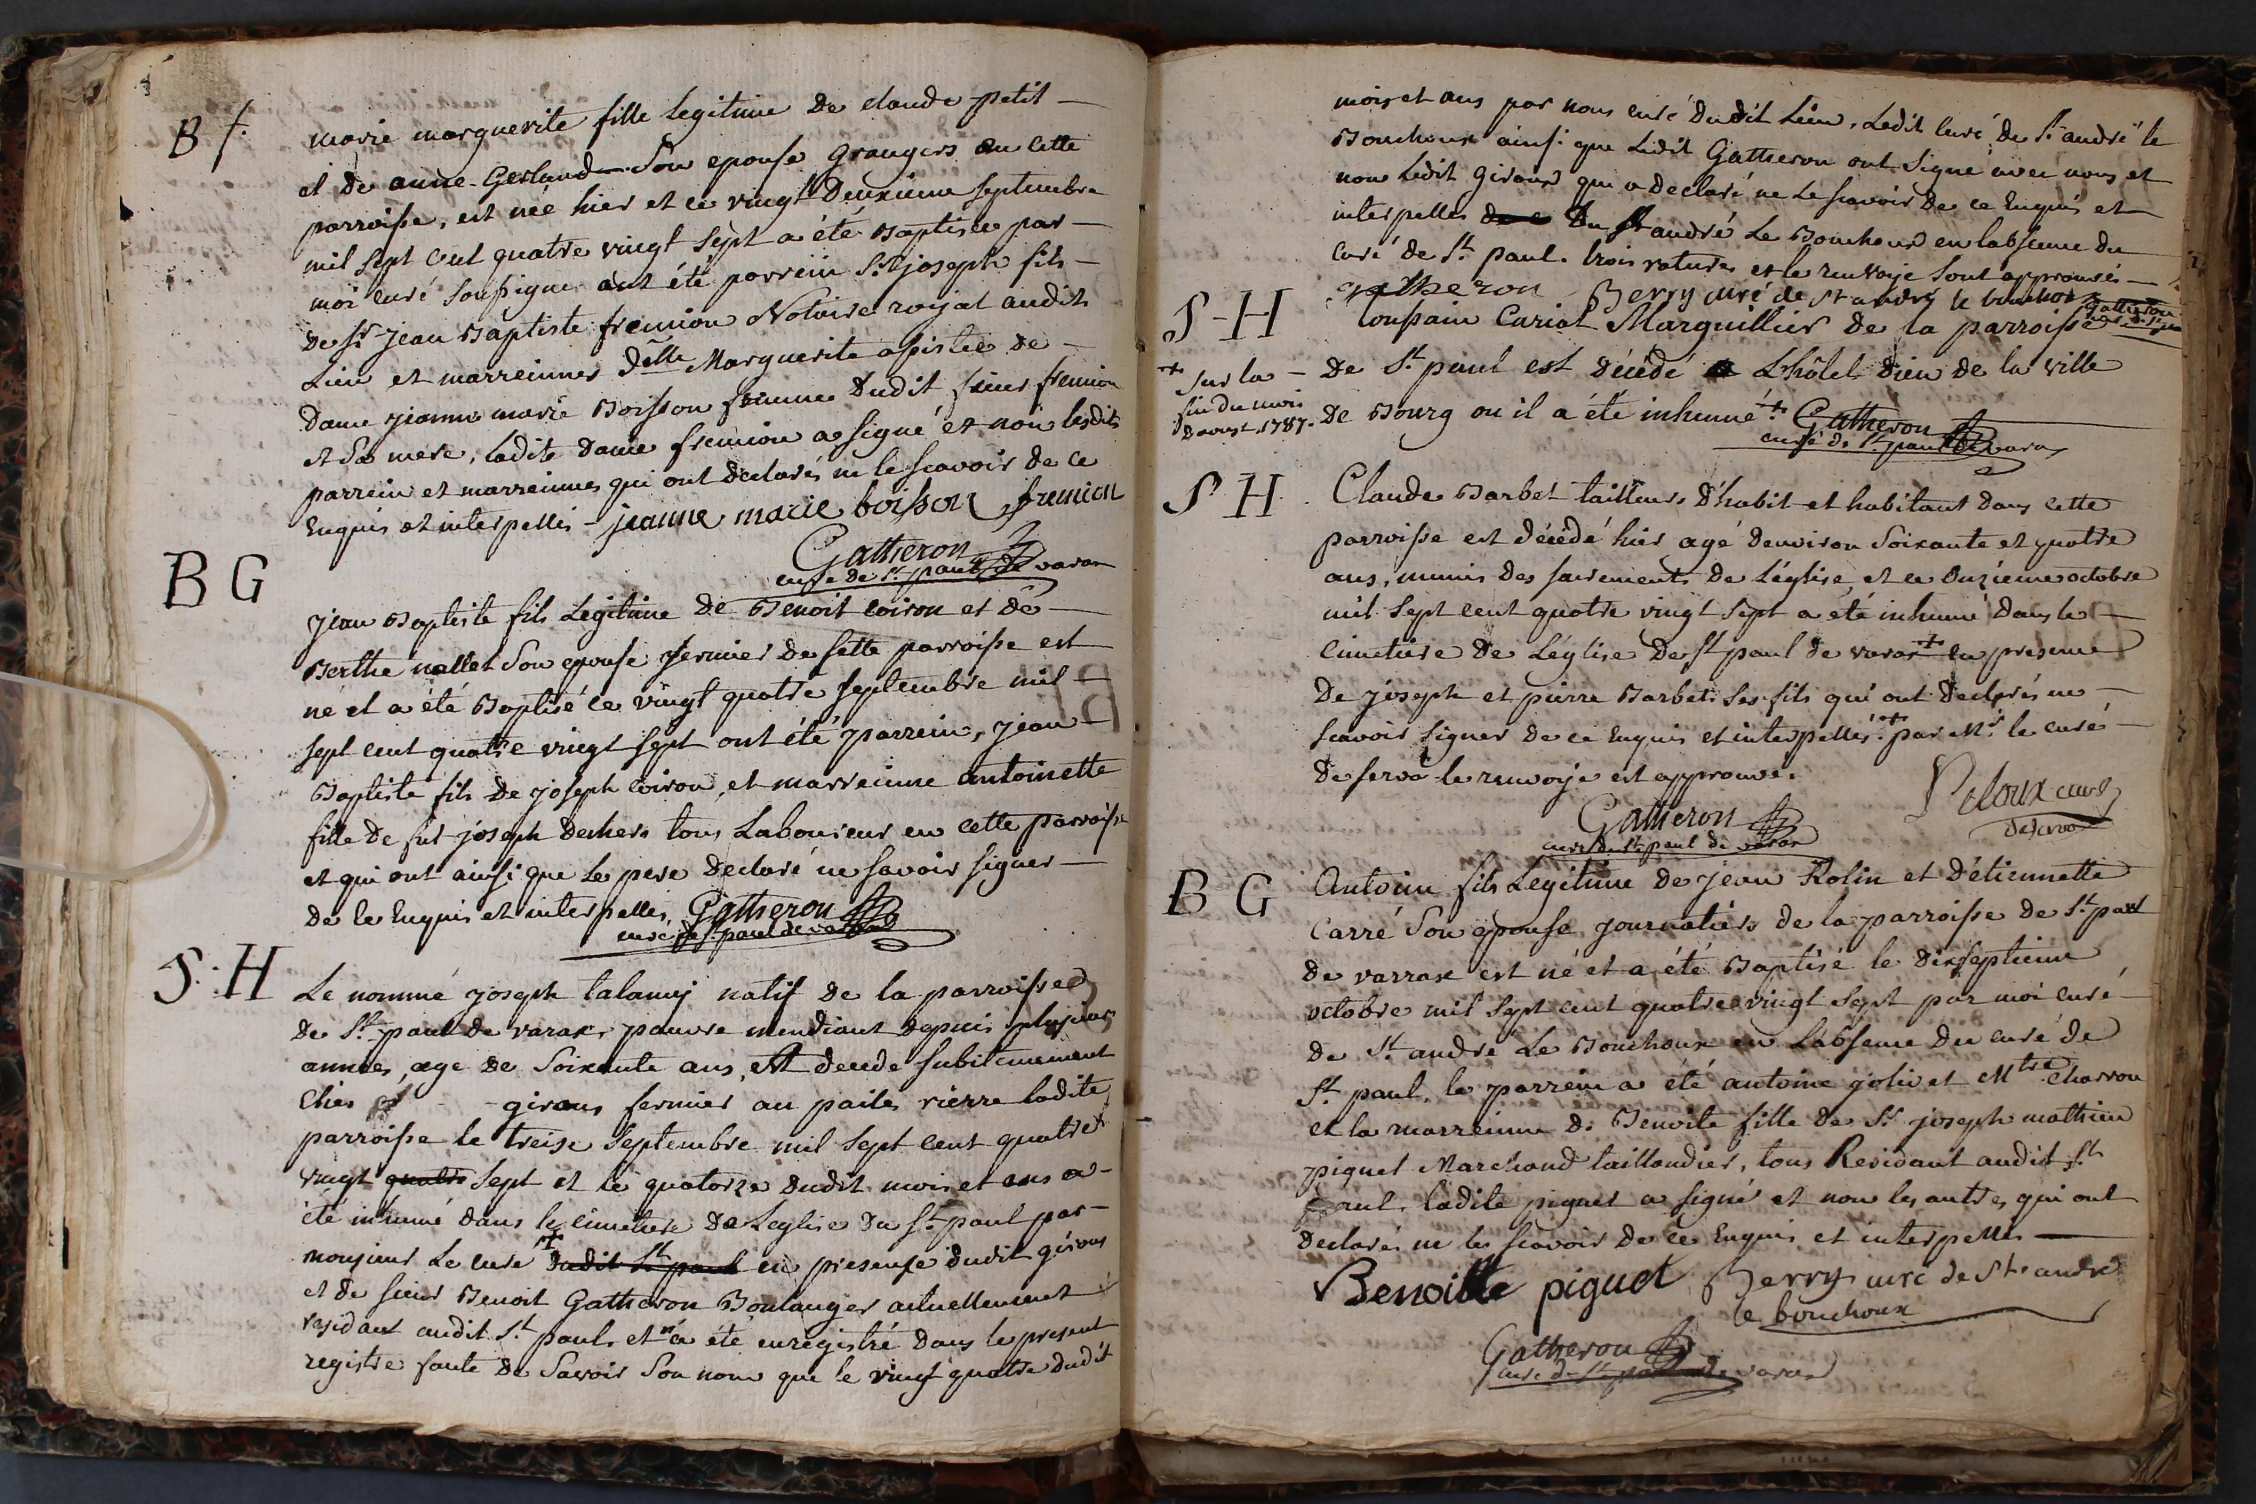 B f.
marie marguerite fille Legitime de claude petit
et de anne Gerland Son epouse grangers en cette
parroisse, est née hier et ce vingt Deuxieme septembre
mil sept cent quatre vingt sept a été Baptisée par
moi curé soussigné ont été parrein Sr joseph fils
de Sr jean Baptiste fremion Notaire roijal audit
Lieu et marreinnes dlle Marguerite assistée de
Dame jeanne marie Boisson femme dudit sieur fremion
et Sa mere, ladite Dame fremion a signé et non lesdits
parrein et marreinnes qui ont declarés ne le scavoir de ce
Enquis et interpellés - jeanne marie boisson fremion
Gatheron
curé de st paul de varax
B G
jean Baptiste fils Legitime de Benoit Coiron et de
Berthe nallet Son epouse fermier de sette parroisse est
né et a été Baptisé ce vingt quatre septembre mil
sept cent quatre vingt sept ont été parrein, jean
Baptiste fils de joseph Coiron, et marreinne antoinette
fille de fut joseph dechers tous Laboureur en cette parroisse
et qui ont ainsi que Le pere declaré ne savoir signer
de ce Enquis et interpelles. Gatheron
curé de st paul de varax
S. H
Le nommé joseph talamej natif de la parroisse
de St paul de varax, pauvre mendiant depuis plusieurs
annees, age de Soixante ans, est decede subitemement
Chés girous fermier au pailes rierre ladite
parroisse le treise septembre mil sept cent quatre
vingt quatre sept et le quatorze dudit mois et ans a
été inhumé dans le cimetiere de Leglise du St paul par
monsieur Le curé + dudit St paul en presense dudit girous
et de sieur Benoit Gatheron Boulanger actuellement
residant audit St paul et n'a été enregistré dans le present
registre faute de Savoir Son nom que le vingt quatre dudit
mois et ans par nous curé dudit Lieu, Ledit curé de St andré le
Bouchoux ainsi que Ledit Gatheron ont signé avec nous et
non Ledit girous qui a declaré ne Le scavoir de ce Enquis et
interpelles de c Du St andré Le Bouchoux en labsence du
curé de St paul. trois ratures et le renvoje sont approuvés
gatheron Berry curé de St andré le bouchoux
Gatheron
S - H
toussain Cariat Marguillier de la parroisse
de St paul est décédé a L'hôtel dieu de la ville
de Bourg ou il a été inhumé + Gatheron
curé de St paul de varax
+ sur la
fin du mois
d'aoust 1787.
S H
Claude Barbet tailleurs d'habit et habitant dans cette
parroisse est décédé hier agé denviron Soixante et quatre
ans, munis des sacrements de Léglise, et ce Onzieme octobre
mil sept cent quatre vingt sept a été inhumé dans le
cimetiere de Léglise de St paul de varax + en presence
de joseph et pierre Barbet ses fils qui ont declarés ne
scavoir signer de ce Enquis et interpellés. + par Mr le curé
de servâ le renvoije est approuvé.
Gatheron
curé de St paul de varax
Peloux curé
de servâ
B G
Antoine fils Legitime de jean Rolin et d'étiennette
Carré Son épouse journaliers de la parroisse de St paul
de varrax est né et a été Baptisé le dixseptieme
octobre mil sept cent quatre vingt sept par moi curé
de St andré Le Bouchoux en Labsence du curé de
St paul. le parrein a été antoine jolivet Mtre charron
et la marreinne d. Benoite fille de Sr joseph mathieu
piquet Marchand taillandier, tous Residant audit St
paul. ladite piquet a signé et non les autres qui ont
declarés ne les scavoir de ce Enquis et interpellés
Benoitte piquet Berry curé de St. andré
le bouchoux
Gatheron
curé de St paul de varax